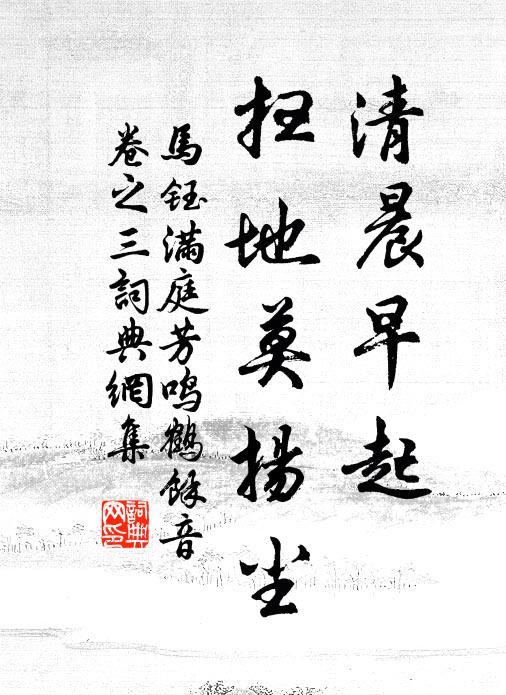 清晨早起
扫地莫揚尘
馬鈺满庭芳鸣鶴餘音
卷之三詞典網集
詞典网印